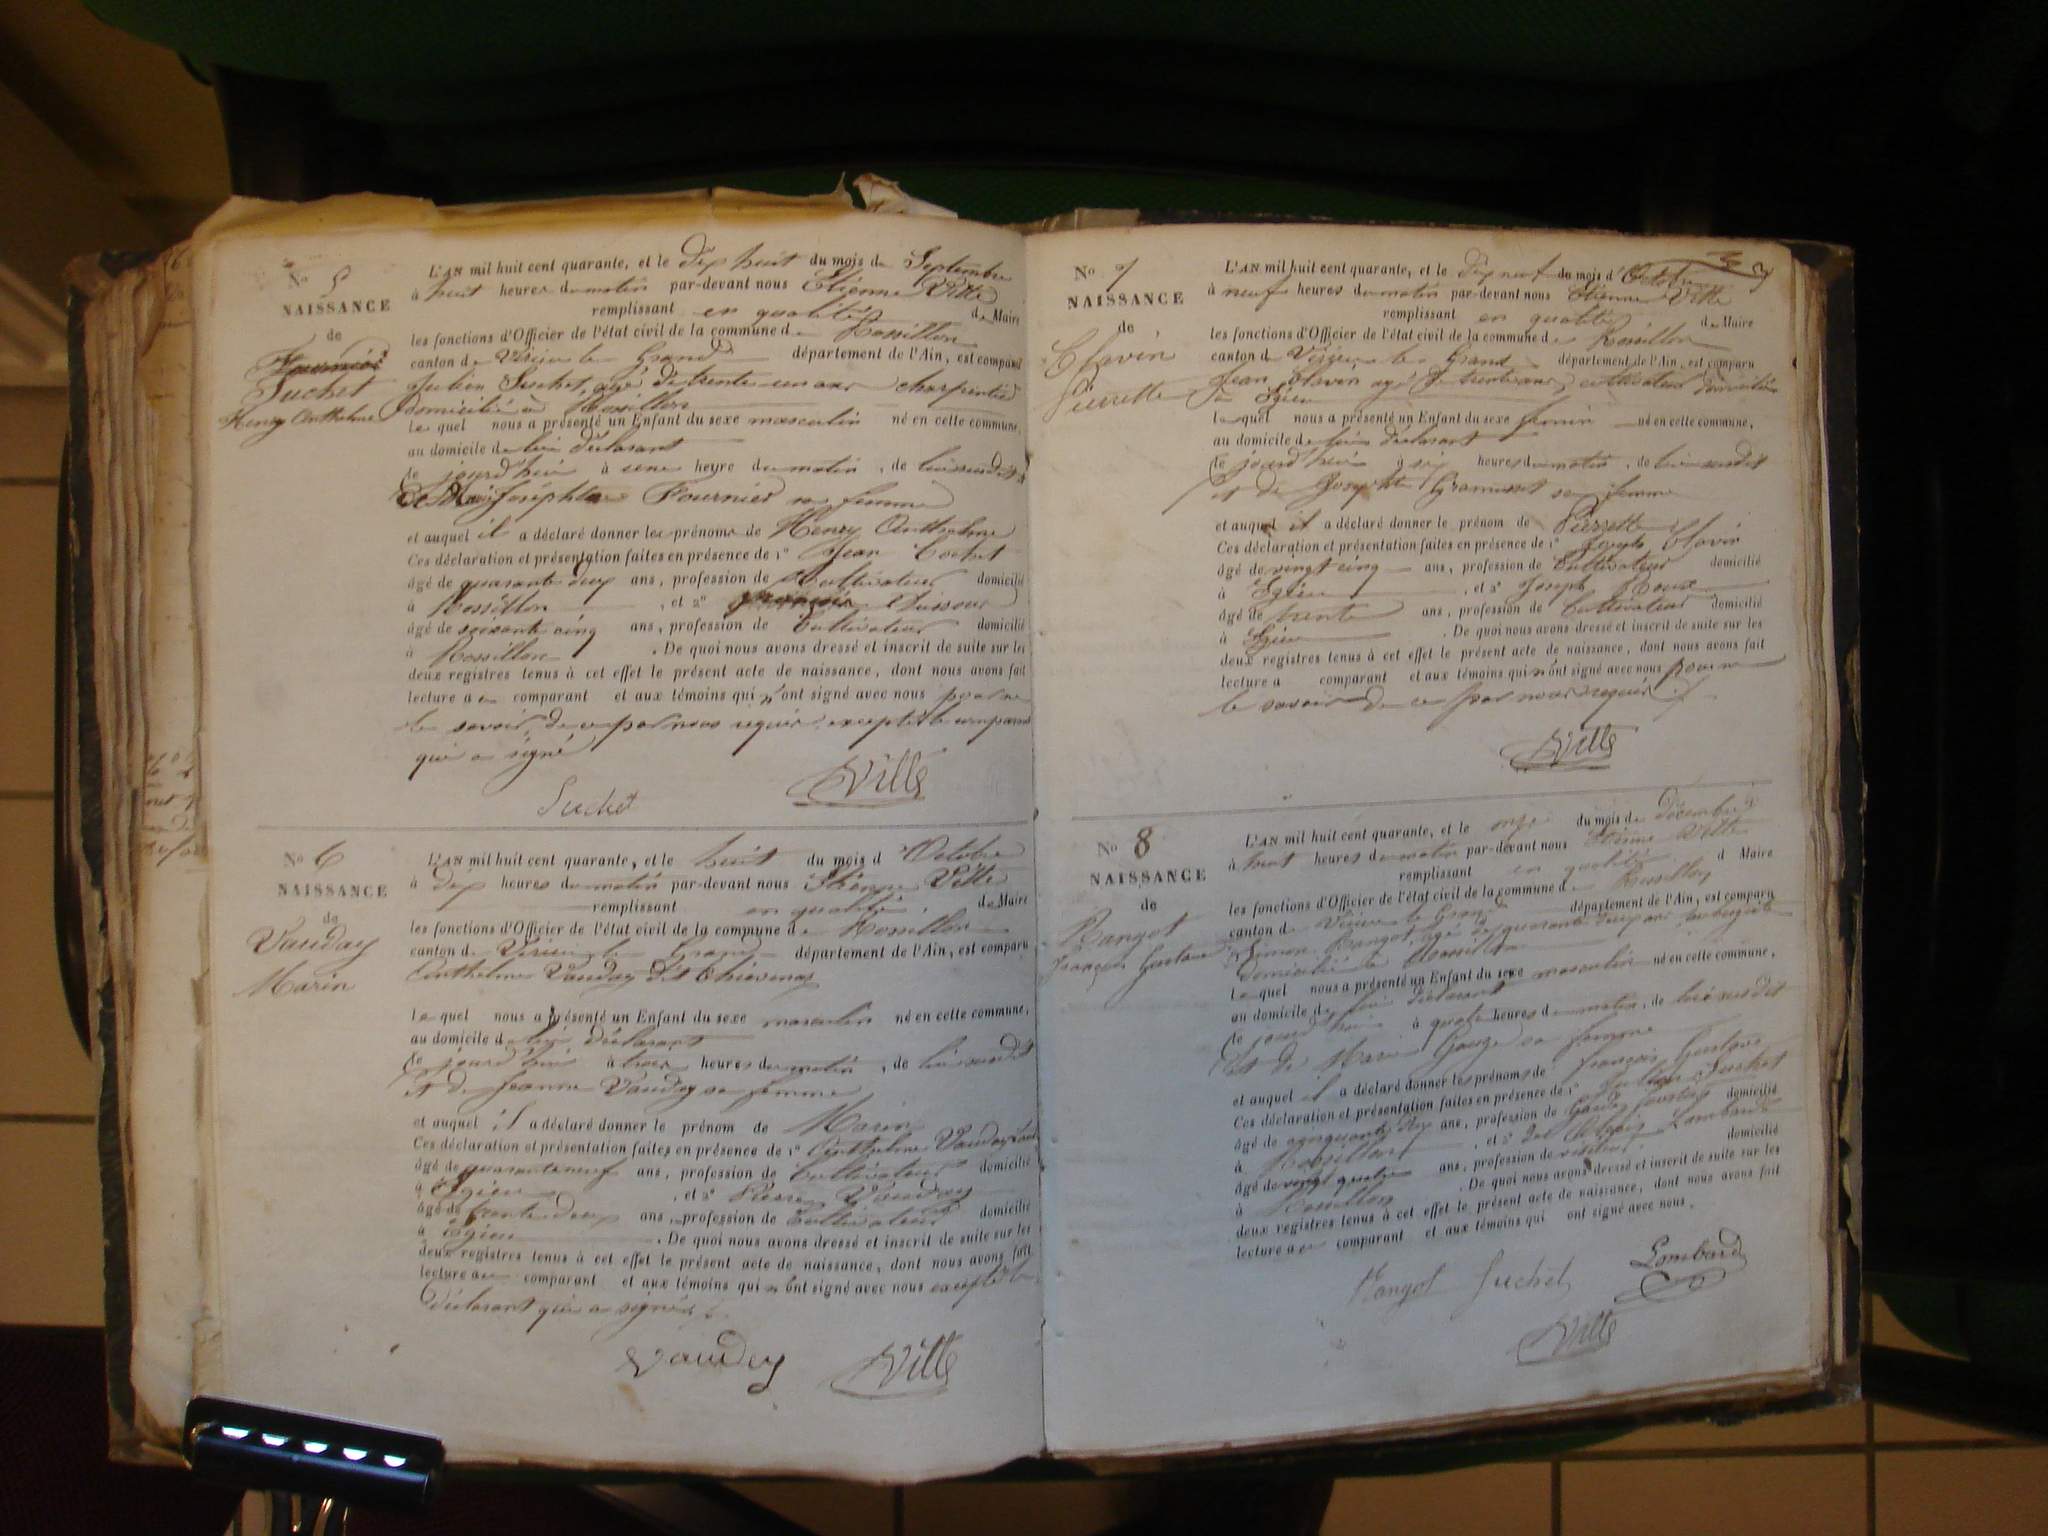 No 5
NAISSANCE
de
Suchet
Henry Anthelme
L'AN mil huit cent quarante, et le dix huit du mois de Septembre
à huit heures du matin par-devant nous Etienne Ville
remplissant en qualité de Maire
les fonctions d'Officier de l'état civil de la commune de Rossillon
canton de Virieu le Grand département de l'Ain, est comparu
Julien Suchet, agé de trente un ans charpentier
domicilié à Rossillon
lequel nous a présenté un Enfant du sexe masculin né en cette commune,
au domicile de lui déclarant
ce jourd'hui à une heure du matin, de lui susdit
Joséphte Fournier sa femme
et auquel il a déclaré donner les prénoms de Henry Anthelme
Ces déclaration et présentation faites en présence de 1° Jean Cochet
âgé de quarante deux ans, profession de Cultivateur domicilié
à Rossillon, et 2°
âgé de soixante cinq ans, profession de Cultivateur domicilié
à Rossillon. De quoi nous avons dressé et inscrit de suite sur les
deux registres tenus à cet effet le présent acte de naissance, dont nous avons fait
lecture au comparant et aux témoins qui n'ont signé avec nous pour ne
le savoir, de ce par nous requis excepté le comparant
qui a signé
Suchet Ville
No 6
NAISSANCE
de
Vauday
Marin
L'AN mil huit cent quarante, et le huit du mois d'Octobre
à dix heures du matin par-devant nous Etienne Ville
remplissant en qualité de Maire
les fonctions d'Officier de l'état civil de la commune de Rossillon
canton de Virieu le Grand département de l'Ain, est comparu
Anthelme Vauday dit
lequel nous a présenté un Enfant du sexe masculin né en cette commune,
au domicile de lui déclarant
ce jourd'hui à trois heures du matin, de lui susdit
et de Jeanne Vauday sa femme
et auquel il a déclaré donner le prénom de Marin
Ces déclaration et présentation faites en présence de 1° Anthelme Vauday
âgé de quarante neuf ans, profession de Cultivateur domicilié
à Egieu, et 2° Pierre Vauday
âgé de trente deux ans, profession de Cultivateur domicilié
à Egieu. De quoi nous avons dressé et inscrit de suite sur les
deux registres tenus à cet effet le présent acte de naissance, dont nous avons fait
lecture au comparant et aux témoins qui n'ont signé avec nous excepté le
déclarant qui a signé
Vauday Ville
3
No 7
NAISSANCE
de
Clavin
Pierrette
L'AN mil huit cent quarante, et le dix neuf du mois d'Octobre
à neuf heures du matin par-devant nous Etienne Ville
remplissant en qualité de Maire
les fonctions d'Officier de l'état civil de la commune de Rossillon
canton de Virieu le Grand département de l'Ain, est comparu
Jean Clavin agé de trente ans, cultivateur domicilié
à Egieu
lequel nous a présenté un Enfant du sexe féminin né en cette commune,
au domicile de lui déclarant
ce jourd'hui à six heures du matin, de lui susdit
et de Josephte Gramusset sa femme
et auquel il a déclaré donner le prénom de Pierrette
Ces déclaration et présentation faites en présence de 1° Joseph Clavin
âgé de vingt cinq ans, profession de Cultivateur domicilié
à Egieu, et 2° Joseph Roux
âgé de trente ans, profession de Cultivateur domicilié
à Egieu. De quoi nous avons dressé et inscrit de suite sur les
deux registres tenus à cet effet le présent acte de naissance, dont nous avons fait
lecture a comparant et aux témoins qui n'ont signé avec nous pour ne
le savoir de ce par nous requis
Ville
No 8
NAISSANCE
de
Rangot
François Gustave
L'AN mil huit cent quarante, et le onze du mois de Décembre
à huit heures du matin par-devant nous Etienne Ville
remplissant en qualité d Maire
les fonctions d'Officier de l'état civil de la commune de Rossillon
canton de Virieu le Grand département de l'Ain, est comparu
Simon Rangot, agé de quarante deux ans, aubergiste
domicilié à Rossillon
lequel nous a présenté un Enfant du sexe masculin né en cette commune,
au domicile de lui déclarant
ce jourd'hui à quatre heures du matin, de lui susdit
et de Marie Gouge sa femme
et auquel il a déclaré donner les prénoms de François Gustave
Ces déclaration et présentation faites en présence de 1° Julien Suchet
âgé de ans, profession de domicilié
à Rossillon, et 2° Lombard
âgé de vingt quatre ans, profession de domicilié
à Rossillon. De quoi nous avons dressé et inscrit de suite sur les
deux registres tenus à cet effet le présent acte de naissance, dont nous avons fait
lecture au comparant et aux témoins qui ont signé avec nous.
Rangot Suchet Lombard
Ville